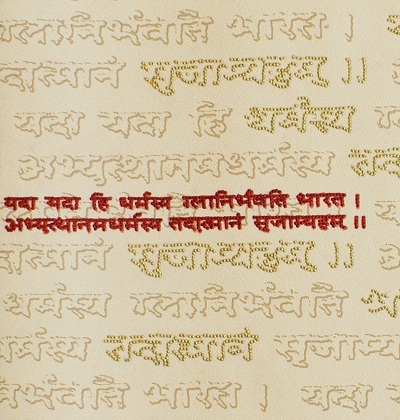 ग्लानिर्भवति भारत ।
सृजाम्यहम् ।।
यदा यदा हि धर्मस्य
अभ्युत्थानमधर्मस्य
यदा यदा हि धर्मस्य ग्लानिर्भवति भारत ।
अभ्युत्थानमधर्मस्य तदात्मानं सृजाम्यहम् ।।
सृजाम्यहम् ।।
ग्लानिर्भवति
तदात्मानं
भारत । यदा